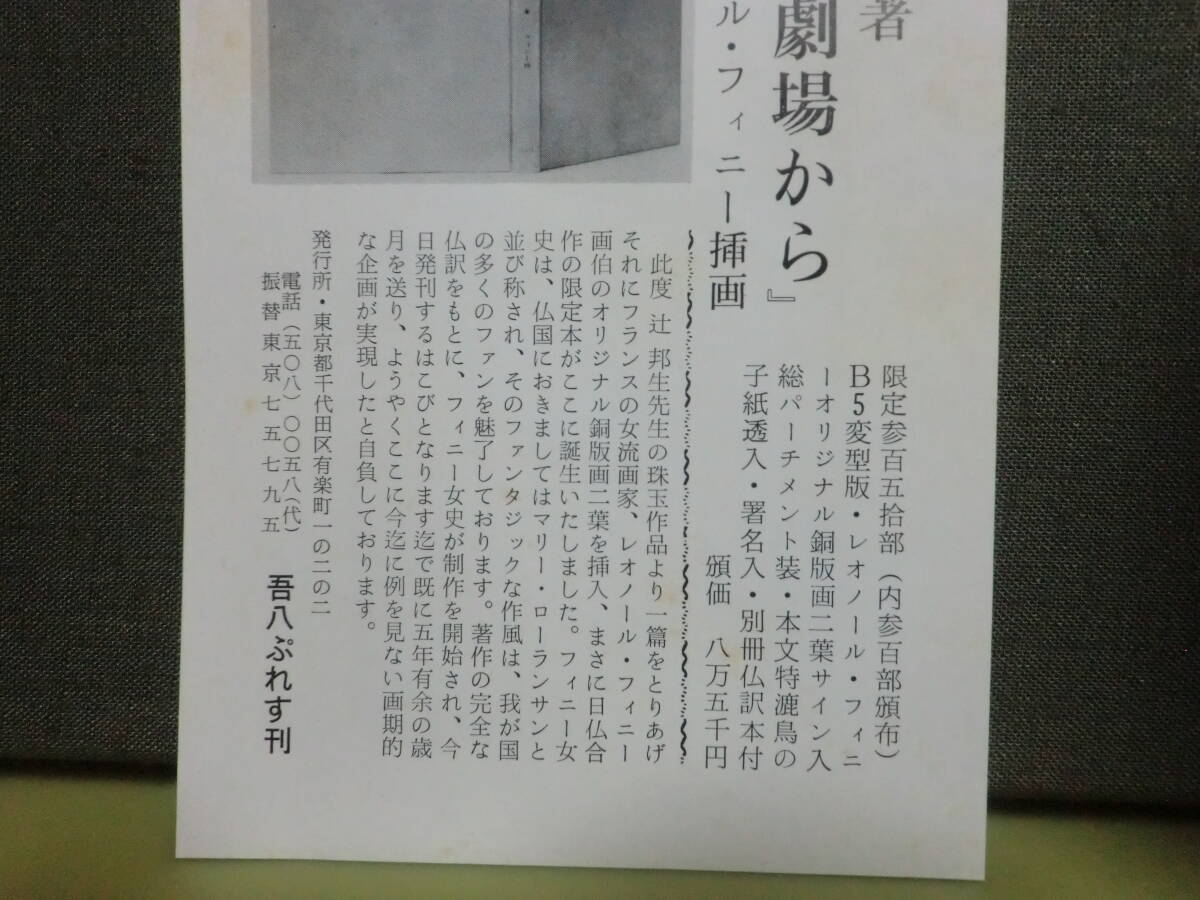 著
劇場から』
ル・フィニー挿画
限定参百五拾部（内参百部頒布）
B5変型版・レオノール・フィニ
ーオリジナル銅版画二葉サイン入
総パーチメント装・本文特漉鳥の
子紙透入・署名入・別冊仏訳本付
頒価　八万五千円
此度 辻 邦生先生の珠玉作品より一篇をとりあげ
それにフランスの女流画家、レオノール・フィニー
画伯のオリジナル銅版画二葉を挿入、まさに日仏合
作の限定本がここに誕生いたしました。フィニー女
史は、仏国におきましてはマリー・ローランサンと
並び称され、そのファンタジックな作風は、我が国
の多くのファンを魅了しております。著作の完全な
仏訳をもとに、フィニー女史が制作を開始され、今
日発刊するはこびとなります迄で既に五年有余の歳
月を送り、ようやくここに今迄に例を見ない画期的
な企画が実現したと自負しております。
発行所・東京都千代田区有楽町一の二の二
電話（五〇八）〇〇五八（代）
振替東京七五七九五
吾八ぷれす刊